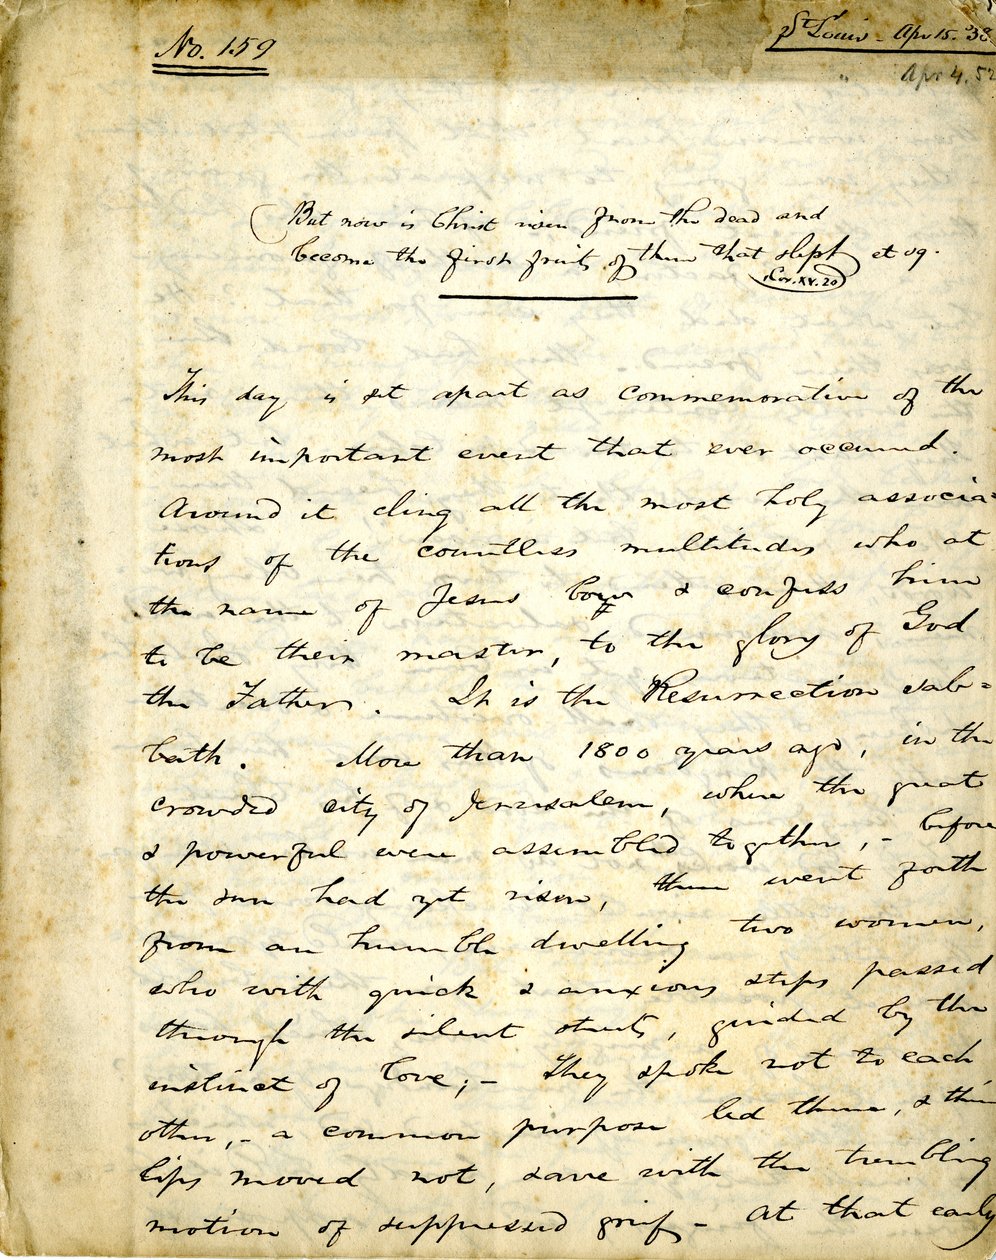 No. 159
St. Louis - Apr 15. '38
" Apr 4. 52
But now is Christ risen from the dead and
become the first fruits of them that slept et sq.
1 Cor. XV. 20
This day is set apart as commemorative of the
most important event that ever occurred.
Around it cling all the most holy associa=
tions of the countless multitudes who at
the name of Jesus bow & confess him
to be their master, to the glory of God
the Father. It is the Resurrection Sab=
bath. More than 1800 years ago, in the
crowded city of Jerusalem, where the great
& powerful were assembled together, - before
the sun had yet risen, there went forth
from an humble dwelling two women,
who with quick & anxious steps passed
through the silent streets, guided by the
instinct of love; - They spoke not to each
other, - a common purpose led them, & their
lips moved not, save with the trembling
motion of suppressed grief - At that early